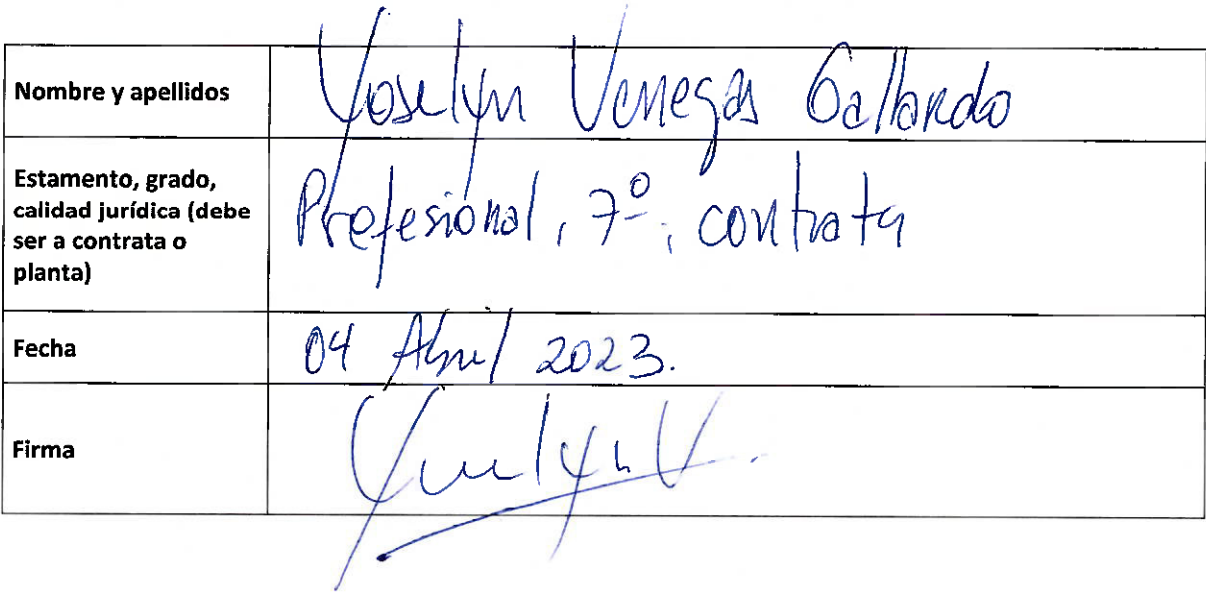 Nombre y apellidos
Yoselyn Venegas Gallardo
Estamento, grado,
calidad jurídica (debe
ser a contrata o
planta)
Profesional, 7º, contrata
Fecha
04 Abril 2023.
Firma
Yoselyn V.